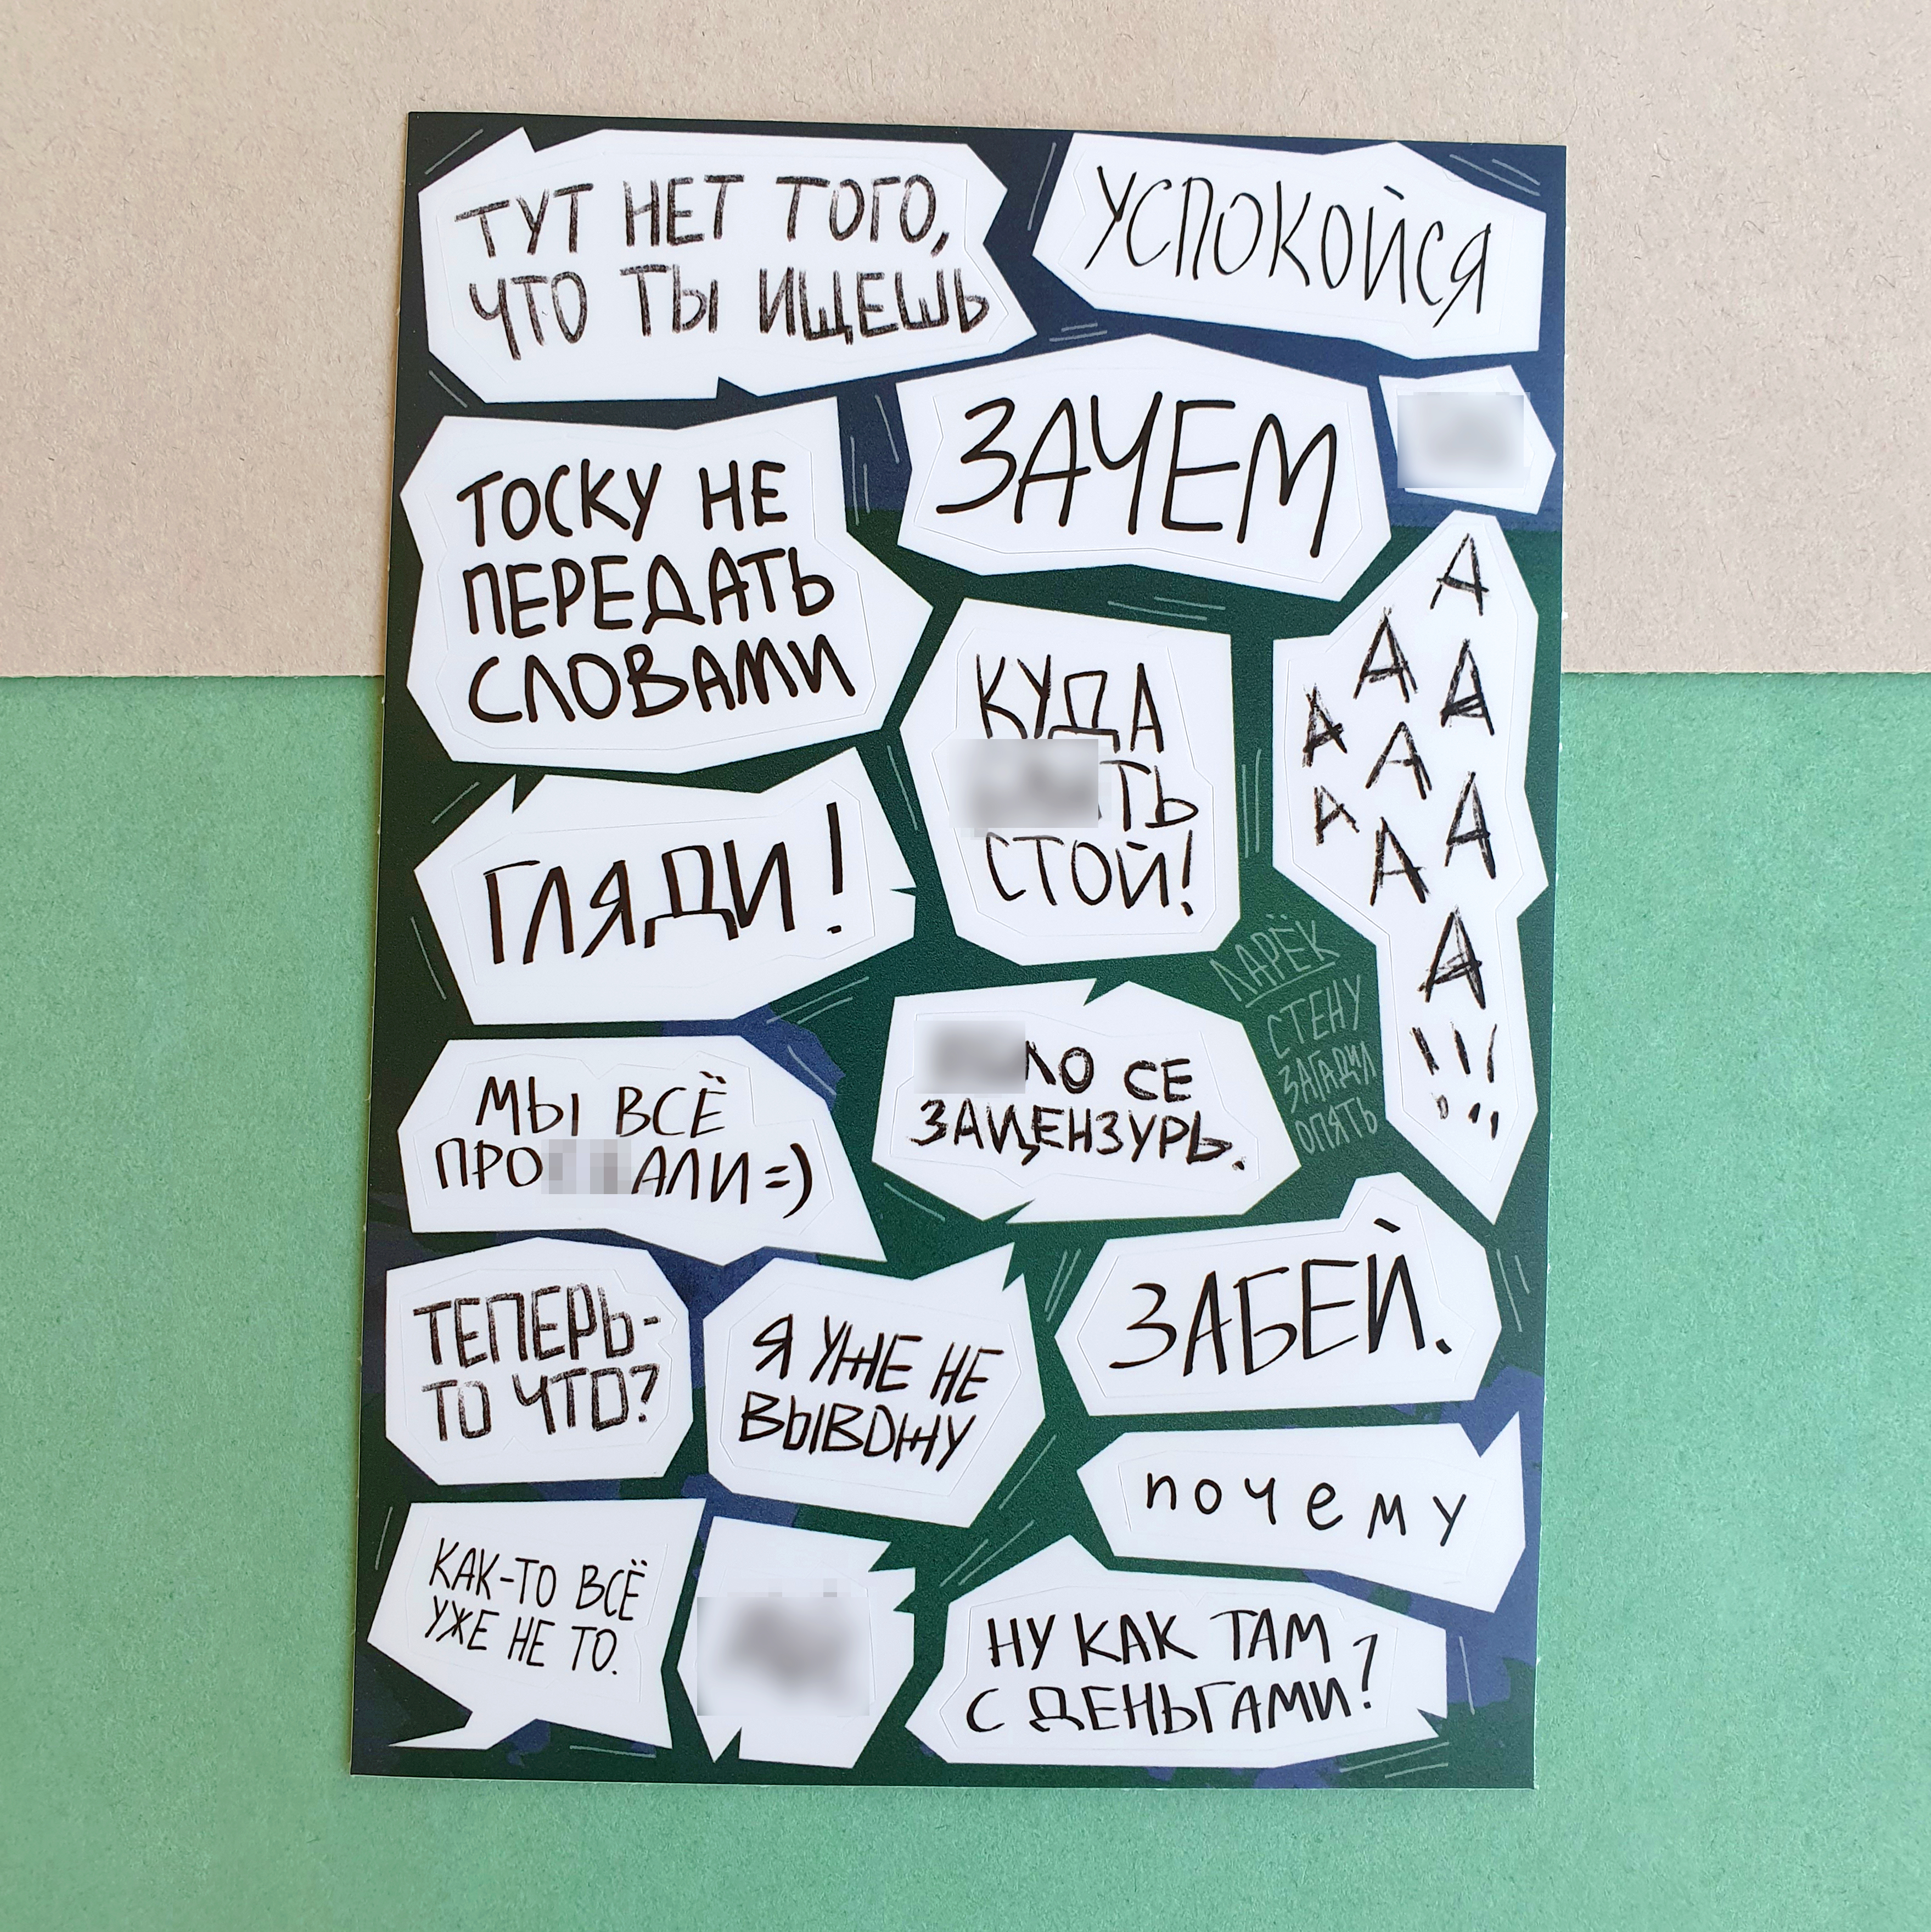 ТУТ НЕТ ТОГО,
ЧТО ТЫ ИЩЕШЬ
УСПОКОЙСЯ
ТОСКУ НЕ
ПЕРЕДАТЬ
СЛОВАМИ
ЗАЧЕМ
А
А
А
А
А
А
А
А
А
!!!
КУДА
СТОЙ!
ГЛЯДИ!
ЛАРЁК
СТЕНУ
ЗАГАДИЛ
ОПЯТЬ
МЫ ВСЁ
=)
СЕ
ЗАЦЕНЗУРЬ.
ТЕПЕРЬ-
ТО ЧТО?
Я УЖЕ НЕ
ВЫВОЖУ
ЗАБЕЙ.
почему
КАК-ТО ВСЁ
УЖЕ НЕ ТО.
НУ КАК ТАМ
С ДЕНЬГАМИ?